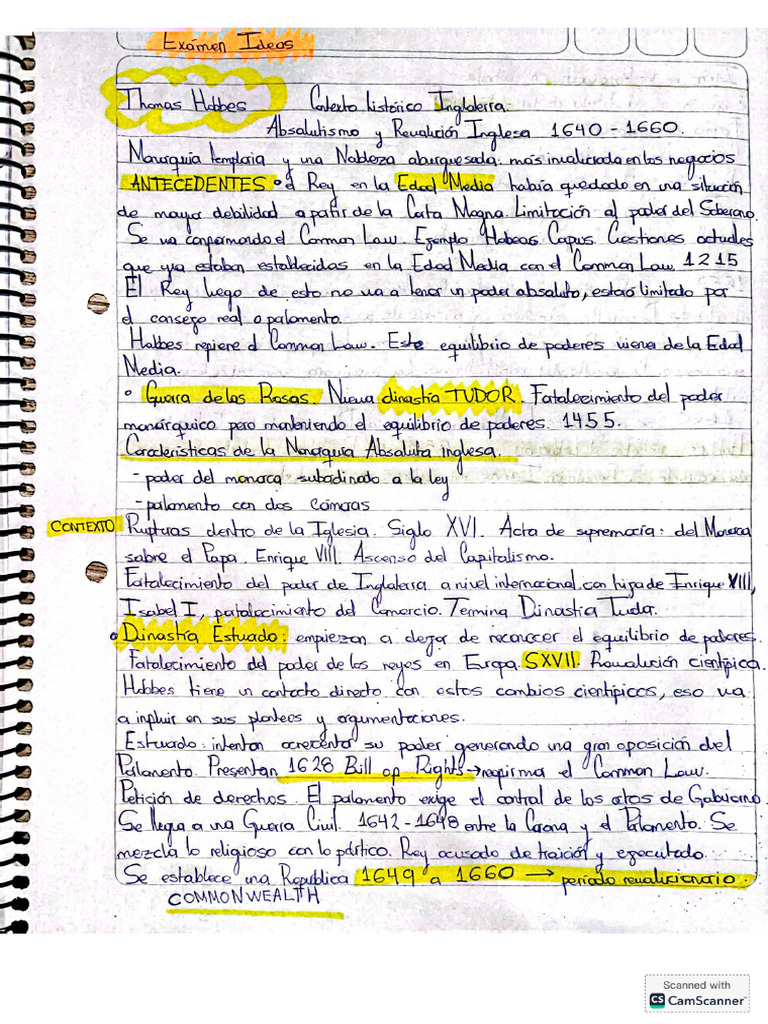 Exámen Ideas
Thomas Hobbes Contexto histórico Inglaterra.
Absolutismo y Revolución Inglesa 1640 - 1660.
Monarquía temploria y una Nobleza aburguesada: más involucrada en los negocios
ANTECEDENTES • el Rey en la Edad Media había quedado en una situación
de mayor debilidad a partir de la Carta Magna. Limitación al poder del Soberano.
Se va conformando el Common Law. Ejemplo Habeas Capus. Cuestiones actuales
que ya estaban establecidas en la Edad Media con el Common Law 1215
El Rey luego de esto no va a tener un poder absoluto, estará limitado por
el consejo real o parlamento.
Hobbes refiere el Common Law. Este equilibrio de poderes viene de la Edad
Media.
• Guerra de las Rosas. Nueva dinastía TUDOR. Fortalecimiento del poder
monárquico pero manteniendo el equilibrio de poderes. 1455.
Características de la Monarquía Absoluta inglesa.
- poder del monarca subordinado a la ley
- parlamento con dos cámaras
CONTEXTO Rupturas dentro de la Iglesia. Siglo XVI. Acta de supremacía: del Monarca
sobre el Papa. Enrique VIII. Ascenso del Capitalismo.
Fortalecimiento del poder de Inglaterra a nivel internacional, con hija de Enrique VIII,
Isabel I, fortalecimiento del Comercio. Termina Dinastía Tudor.
• Dinastía Estuardo: empiezan a dejar de reconocer el equilibrio de poderes.
Fortalecimiento del poder de los reyes en Europa. SXVII. Revolución científica.
Hobbes tiene un contacto directo con estos cambios científicos, eso va
a influir en sus planteos y argumentaciones.
Estuardo: intentan acrecentar su poder generando una gran oposición del
Parlamento. Presentan 1628 Bill of Rights → reafirma el Common Law.
Petición de derechos. El parlamento exige el control de los actos de Gobierno.
Se llega a una Guerra Civil. 1642 - 1648 entre la Corona y el Parlamento. Se
mezcla lo religioso con lo político. Rey acusado de traición y ejecutado.
Se establece una República 1649 a 1660 → periodo revolucionario.
COMMONWEALTH
Scanned with
CS CamScanner